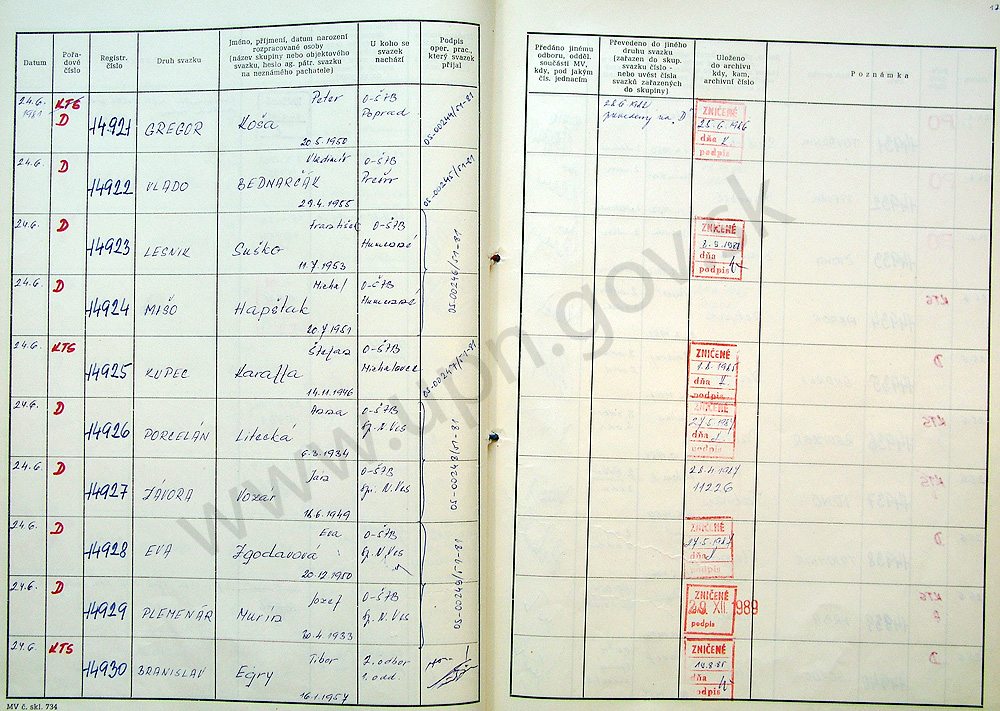 Datum
Pořa-
dové
číslo
Registr.
číslo
Druh svazku
Jméno, příjmení, datum narození
rozpracované osoby
(název skupiny nebo objektového
svazku, heslo ag. pátr. svazku
na neznámého pachatele)
U koho se
svazek
nachází
Podpis
oper. prac.,
který svazek
přijal
Předáno jinému
odboru, odděl.
součásti MV,
kdy, pod jakým
čís. jednacím
Převedeno do jiného
druhu svazku
(zařazen do skup.
svazku číslo -
nebo uvést čísla
svazků zařazených
do skupiny)
Uloženo
do archivu
kdy, kam,
archivní číslo
Poznámka
24.6. 1981 KTS D 14921 GREGOR Peter Koša 20.5.1950 O-ŠTB Poprad 05-00244/51-81
na „D" ZNIČENÉ 25.6.1986 dňa podpis
24.6. D 14922 VLADO Vladimír BEDNARČÁK 29.4.1955 O-ŠTB 05-00245/51-81
24.6. D 14923 LESNIK František Suško 11.7.1953 O-ŠTB Humenné 05-00246/51-81
ZNIČENÉ dňa podpis
24.6. D 14924 MIŠO Michal Hapšťak 20.7.1951 O-ŠTB Humenné
24.6. KTS 14925 KUPEC Štefan Karaffa 14.11.1946 O-ŠTB Michalovce 05-00247/51-81
ZNIČENÉ dňa podpis
24.6. D 14926 PORCELÁN Anna 6.3.1934 O-ŠTB Sp. N. Ves 05-00248/51-81
ZNIČENÉ dňa podpis
24.6. D 14927 JÁVORA Ján Vozár 16.6.1949 O-ŠTB Sp. N. Ves
28.4.1987
11226
24.6. D 14928 EVA Eva Zgodavová 20.12.1950 O-ŠTB Sp. N. Ves 05-00249/51-81
ZNIČENÉ 27.5.1987 dňa podpis
24.6. D 14929 PLEMENÁR Jozef Murín 20.4.1933 O-ŠTB Sp. N. Ves
ZNIČENÉ 29. XII. 1989 podpis
24.6. KTS 14930 BRANISLAV Tibor Egry 16.1.1957 2. odbor 1. odd.
ZNIČENÉ dňa podpis
MV č. skl. 734
www.upn.gov.sk